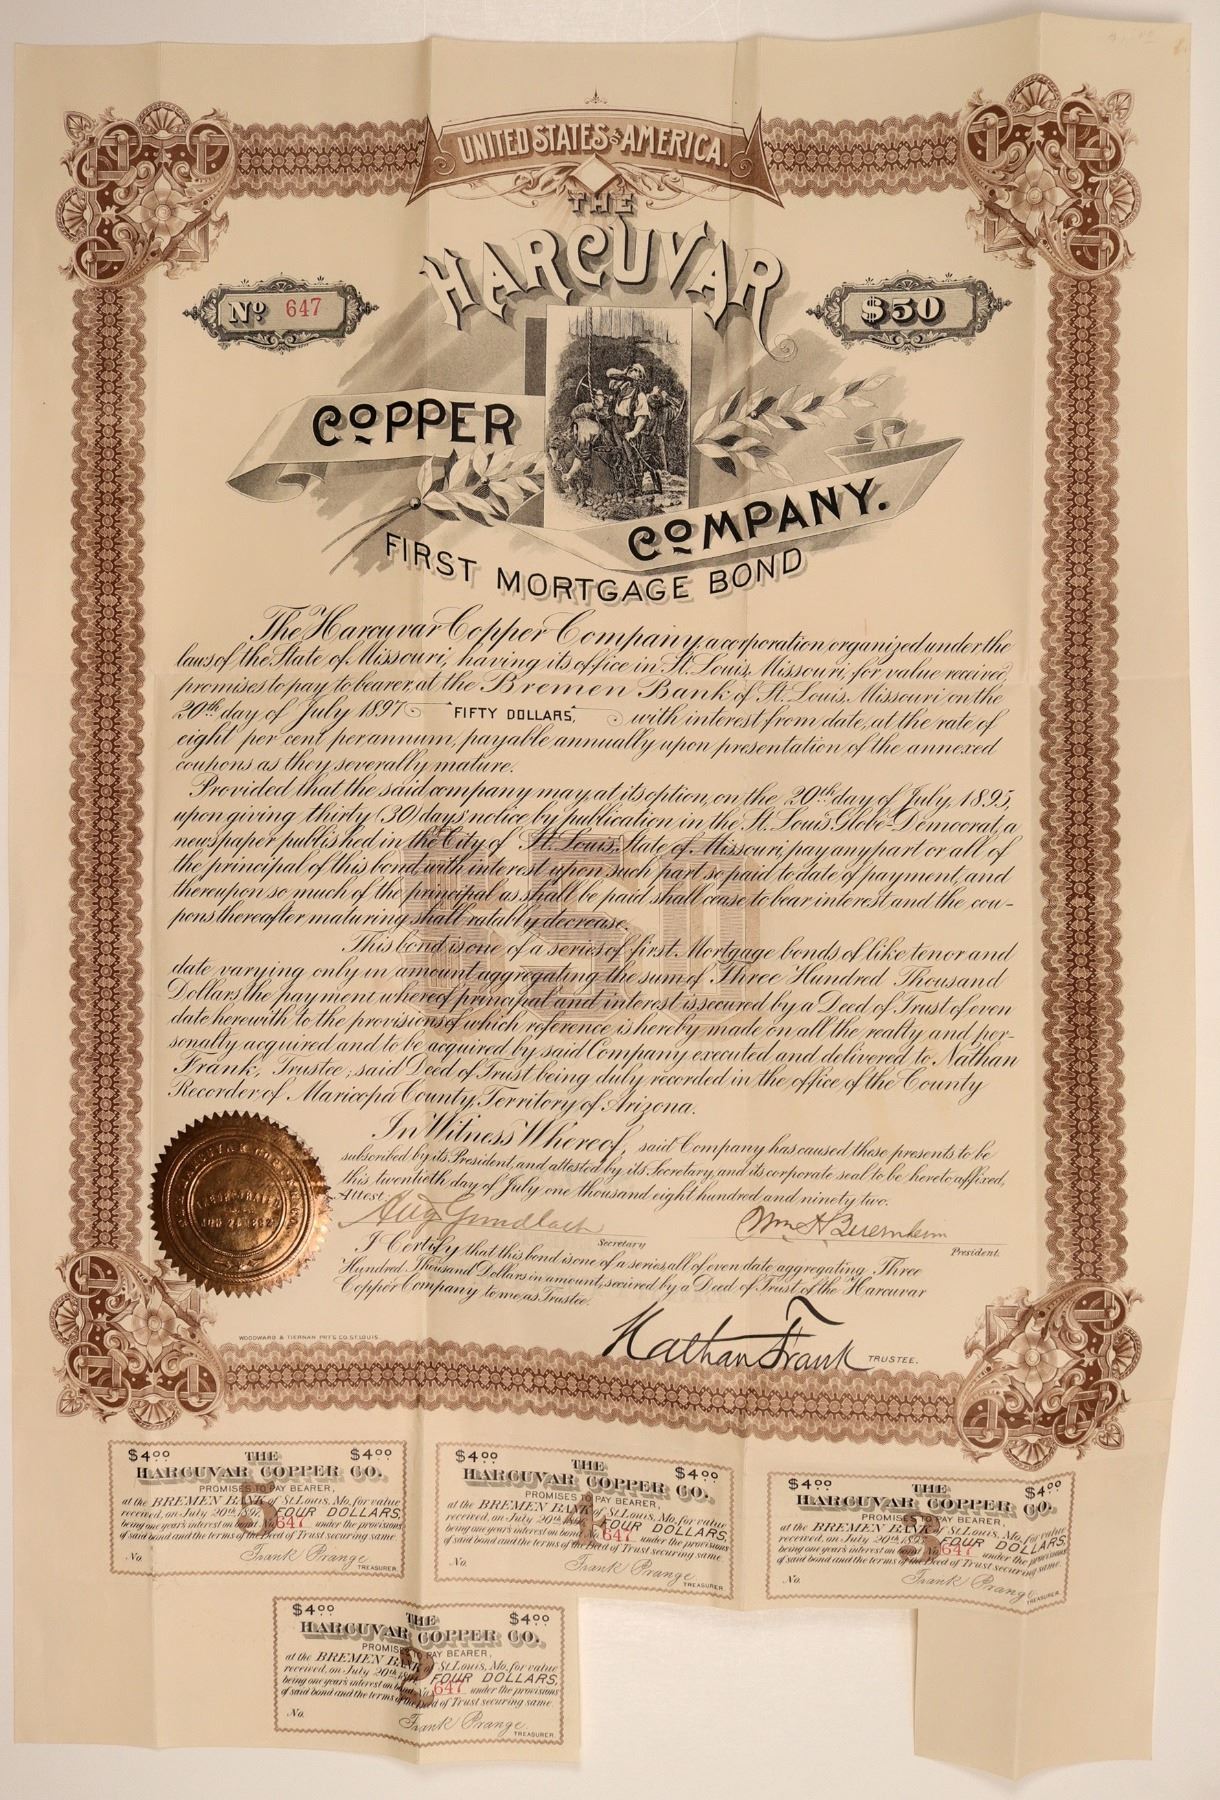 UNITED STATES OF AMERICA.
THE
HARCUVAR
No 647
$50
COPPER
COMPANY.
FIRST MORTGAGE BOND
The Harcuvar Copper Company, a corporation organized under the
laws of the State of Missouri, having its office in St. Louis, Missouri, for value received,
promises to pay to bearer, at the Bremen Bank of St. Louis, Missouri, on the
20th day of July 1897 FIFTY DOLLARS, with interest from date, at the rate of
eight per cent per annum, payable annually upon presentation of the annexed
coupons as they severally mature.
Provided that the said company may, at its option, on the 20th day of July, 1895,
upon giving thirty (30) days notice by publication in the St. Louis Globe-Democrat, a
newspaper published in the City of St. Louis, State of Missouri, pay any part or all of
the principal of this bond, with interest upon such part so paid to date of payment, and
thereupon so much of the principal as shall be paid shall cease to bear interest and the cou-
pons thereafter maturing shall ratably decrease.
This bond is one of a series of first Mortgage bonds of like tenor and
date varying only in amount aggregating the sum of Three Hundred Thousand
Dollars, the payment whereof principal and interest is secured by a Deed of Trust of even
date herewith to the provisions of which reference is hereby made, on all the realty and per-
sonalty acquired and to be acquired by said Company executed and delivered to Nathan
Frank, Trustee; said Deed of Trust being duly recorded in the office of the County
Recorder of Maricopa County, Territory of Arizona.
In Witness Whereof, said Company has caused these presents to be
subscribed by its President, and attested by its Secretary, and its corporate seal to be hereto affixed,
this twentieth day of July one thousand eight hundred and ninety two.
Attest
Aug Gundlach
Secretary
Wm H
President.
I Certify that this bond is one of a series all of even date aggregating Three
Hundred Thousand Dollars in amount, secured by a Deed of Trust of the Harcuvar
Copper Company to me as Trustee.
Nathan Frank TRUSTEE.
WOODWARD & TIERNAN PRT'G CO. ST. LOUIS
$4.00 THE $4.00
HARCUVAR COPPER CO.
PROMISES TO PAY BEARER,
at the BREMEN BANK of St. Louis, Mo. for value
received, on July 20th 1897, FOUR DOLLARS,
being one year's interest on bond No. 647 under the provisions
of said bond and the terms of the Deed of Trust securing same.
No. 5
Frank Prange
TREASURER.
$4.00 THE $4.00
HARCUVAR COPPER CO.
PROMISES TO PAY BEARER,
at the BREMEN BANK of St. Louis, Mo. for value
received, on July 20th FOUR DOLLARS,
being one year's interest on bond No. 647 under the provisions
of said bond and the terms of the Deed of Trust securing same.
No. 4
Frank Prange
TREASURER.
$4.00 THE $4.00
HARCUVAR COPPER CO.
PROMISES TO PAY BEARER,
at the BREMEN BANK of St. Louis, Mo. for value
received, on July 20th 1895, FOUR DOLLARS,
being one year's interest on bond No. 647 under the provisions
of said bond and the terms of the Deed of Trust securing same.
No. 3
Frank Prange
TREASURER.
$4.00 THE $4.00
HARCUVAR COPPER CO.
PROMISES TO PAY BEARER,
at the BREMEN BANK of St. Louis, Mo. for value
received, on July 20th FOUR DOLLARS,
being one year's interest on bond No. 647 under the provisions
of said bond and the terms of the Deed of Trust securing same.
No. 2
Frank Prange
TREASURER.